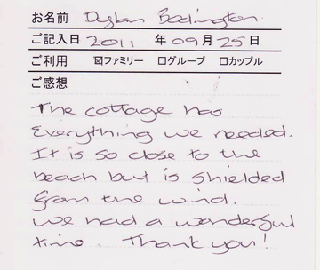 お名前 Dylan Bedington.
ご記入日 2011 年 09 月 25 日
ご利用 ☒ファミリー □グループ □カップル
ご感想
The cottage has
everything we needed.
It is so close to the
beach but is shielded
from the wind.
We had a wonderful
time. Thank you!